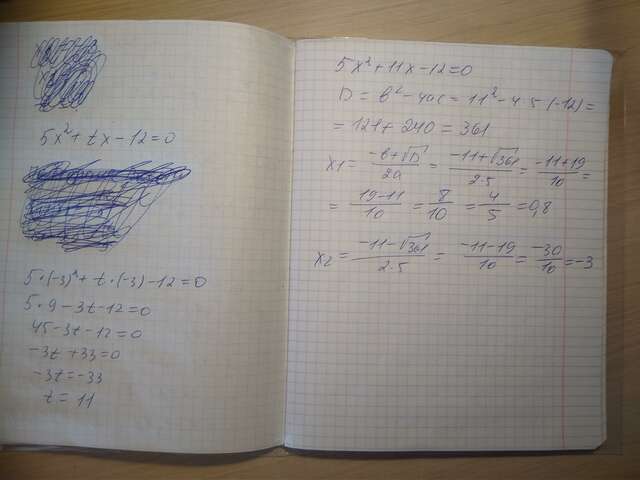 5x²+tx-12=0
5·(-3)²+t·(-3)-12=0
5·9-3t-12=0
45-3t-12=0
-3t+33=0
-3t=-33
t=11
5x²+11x-12=0
D=b²-4ac=11²-4·5·(-12)=
=121+240=361
x₁=(-b+√D)/2a=(-11+√361)/2·5=(-11+19)/10=
=(19-11)/10=8/10=4/5=0,8
x₂=(-11-√361)/2·5=(-11-19)/10=-30/10=-3